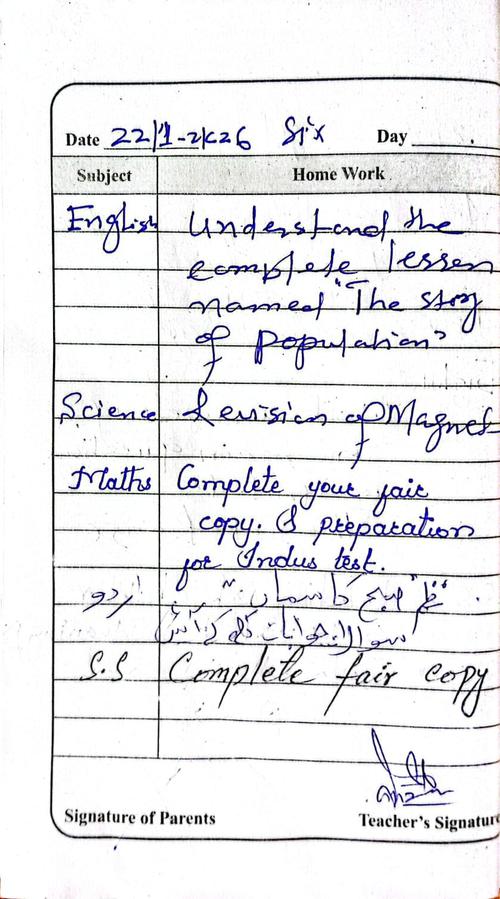 Date 22/1-2026 Six Day
Subject Home Work
English Understand the
complete lesson
named "The story
of population"
Science Revision of Magnet
Maths Complete your fair
copy. & preparation
for Indus test.
اردو نظم "صبح کا سماں"
سوالات جوابات لکھ کر آئیں
S.S Complete fair copy
Signature of Parents Teacher's Signature